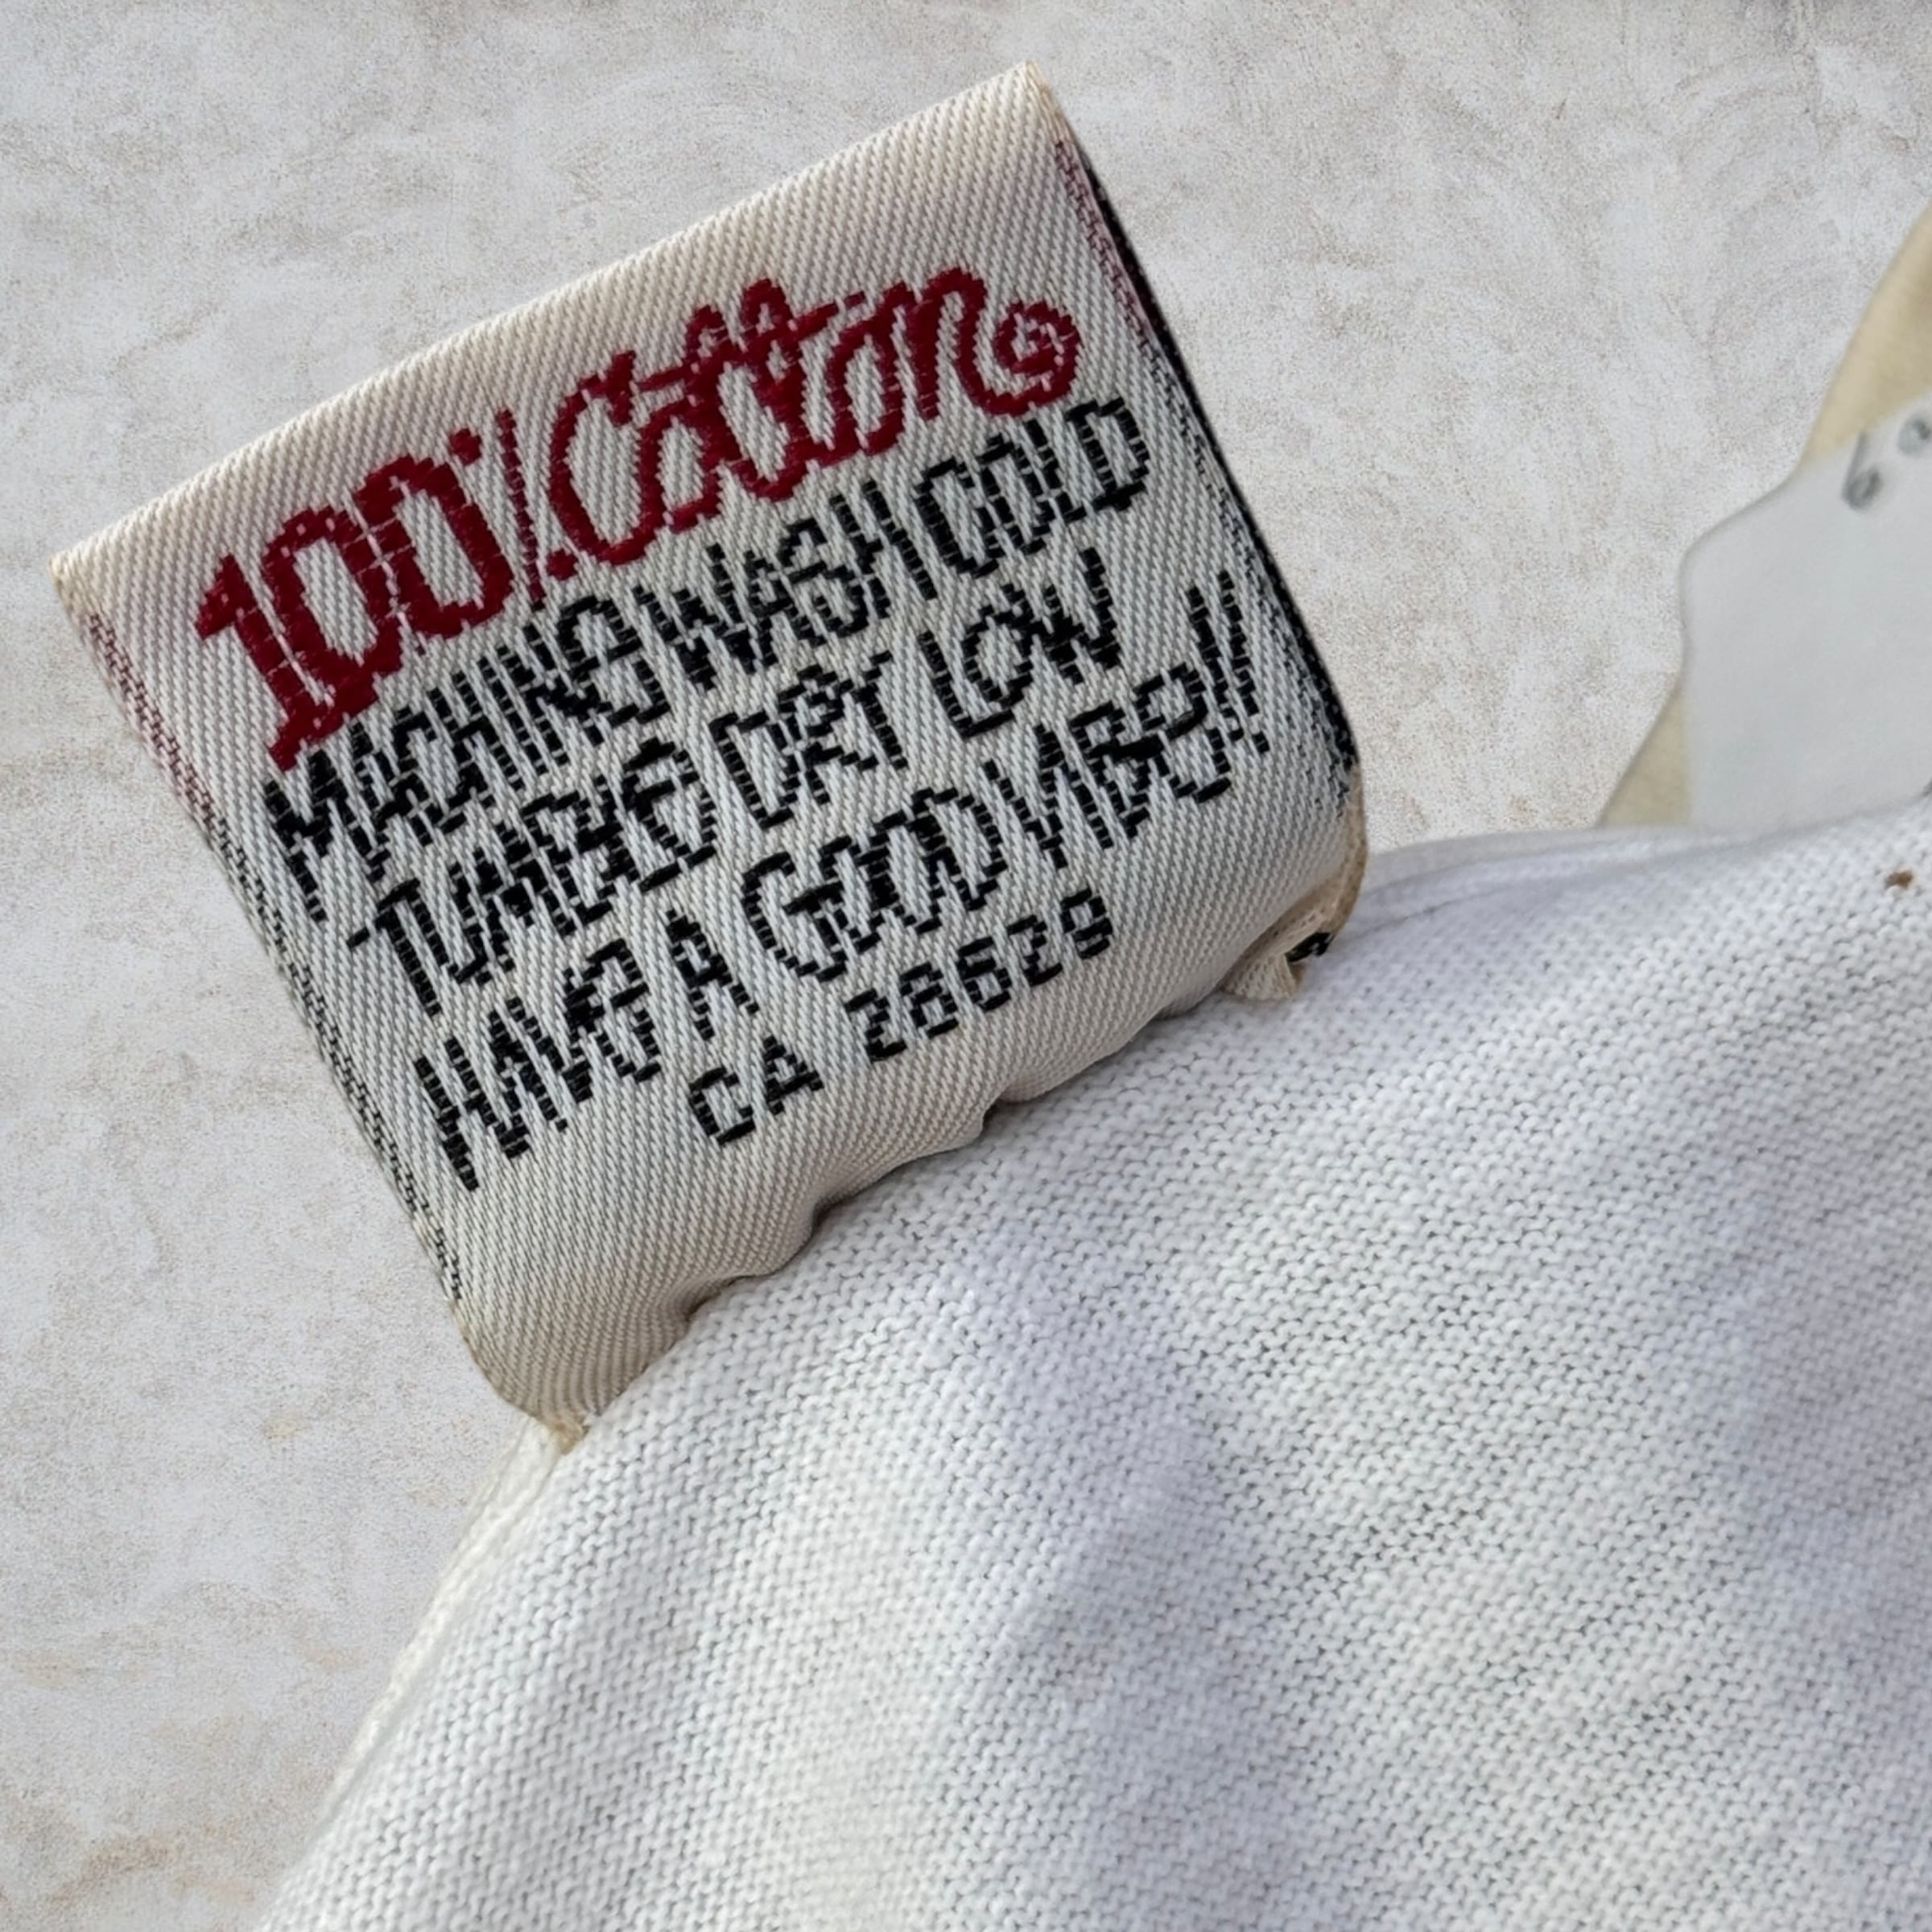 100% Cotton
MACHINE WASH COLD
TUMBLE DRY LOW
HAVE A GOOD VIBE!!
CA 26629